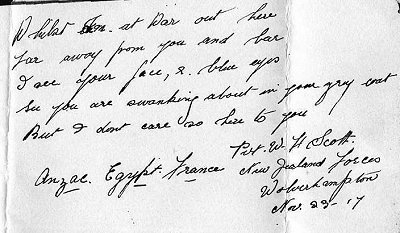 Whilst I'm at War out here
Far away from you and bar
I see your face, & blue eyes
See you are swanking about in your grey coat
But I dont care so here to you
Pvt. W. H. Scott.
Anzac. Egypt. France New Zealand Forces
Wolverhampton
Nov. 23-17